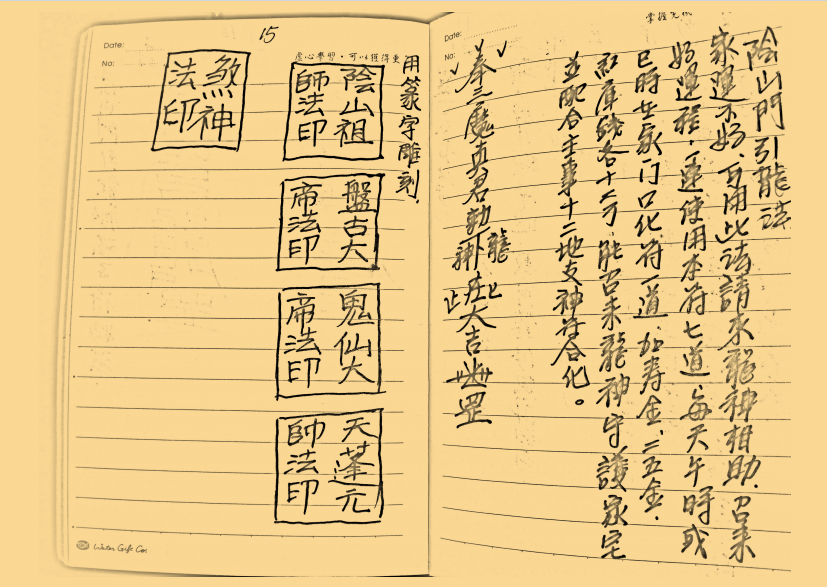 Date:
No:
陰山門引龍法
家運不好、可用此法請來龍神相助.召来
好運程.連使用本符七道、每天午時或
巳時在家门口化符一道.加寿金、三五金.
紅庫錢各十二万.能召来龍神守護家宅
並配合主事十二地支神符合化。
奉三魔真君勅
龍神
大吉
罡
15
Date:
No:
虛心學習・可以獲得更
用篆字雕刻.
陰山祖
師法印
盤古大
帝法印
鬼仙大
帝法印
天蓬元
帥法印
煞神
法印